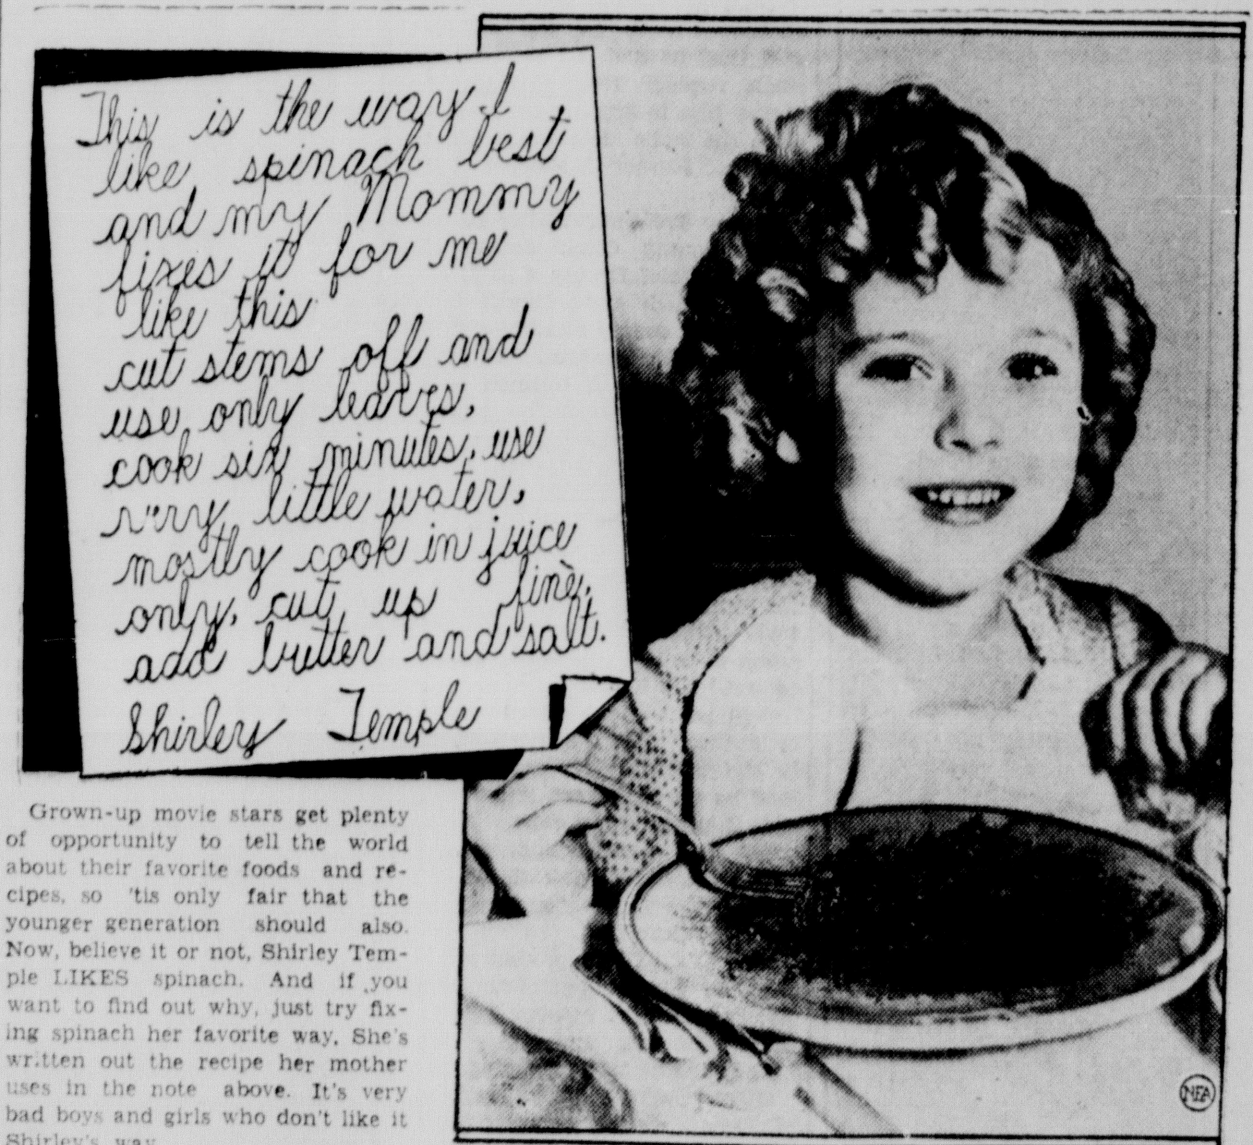 This is the way I
like spinach best
and my Mommy
fixes it for me
like this
cut stems off and
use only leaves,
cook six minutes, use
very little water,
mostly cook in juice
only, cut up fine,
add butter and salt.
Shirley Temple
Grown-up movie stars get plenty
of opportunity to tell the world
about their favorite foods and re-
cipes, so 'tis only fair that the
younger generation should also.
Now, believe it or not, Shirley Tem-
ple LIKES spinach. And if you
want to find out why, just try fix-
ing spinach her favorite way. She's
written out the recipe her mother
uses in the note above. It's very
bad boys and girls who don't like it
Shirley's way
NEA